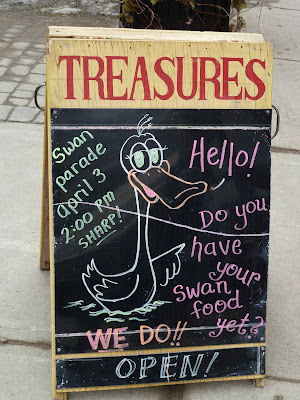 TREASURES
Swan
parade
april 3
2:00 PM
SHARP!
Hello!
Do you
have
your
Swan
food
yet?
WE DO!!
OPEN!